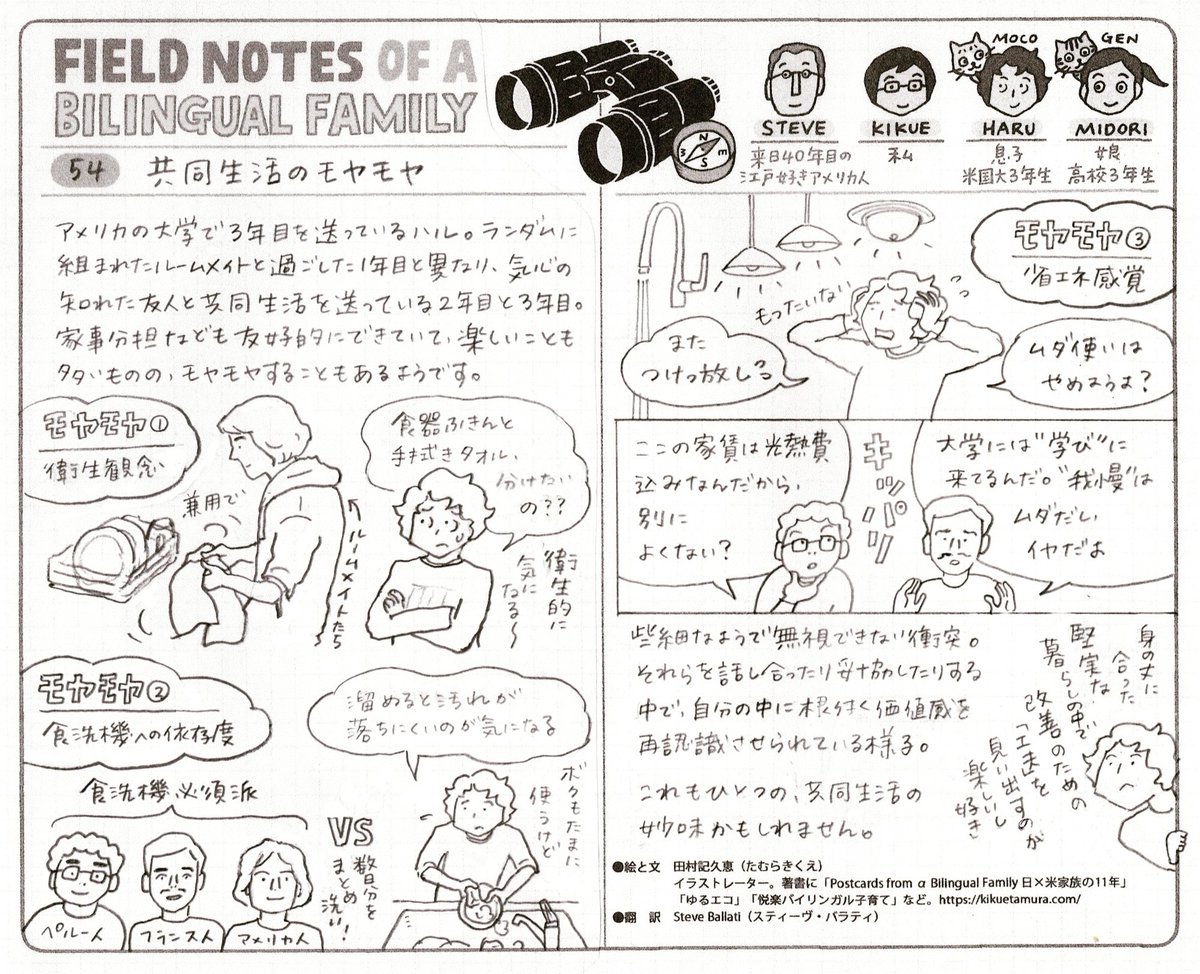 FIELD NOTES OF A
BILINGUAL FAMILY
54 共同生活のモヤモヤ
STEVE
来日40年目の
江戸好きアメリカ人
KIKUE
私
MOCO
HARU
息子
米国大3年生
GEN
MIDORI
娘
高校3年生
N
S
アメリカの大学で3年目を送っているハル。ランダムに
組まれたルームメイトと過ごした1年目と異なり、気心の
知れた友人と共同生活を送っている2年目と3年目。
家事分担なども友好的にできていて、楽しいことも
多いものの、モヤモヤすることもあるようです。
モヤモヤ①
衛生観念
兼用で
←ルームメイトたち
食器ふきんと
手拭きタオル、
分けたい
の??
衛生的に
気に
なる〜
モヤモヤ②
食洗機への依存度
食洗機必須派
ペルー人
フランス人
アメリカ人
VS
数日分を
まとめ
洗い!
溜めると汚れが
落ちにくいのが気になる
ボクもたまに
使うけど
モヤモヤ③
省エネ感覚
もったいない
また
つけっ放し?
ムダ使いは
やめようよ?
ここの家賃は光熱費
込みなんだから、
別に
よくない?
キッパリ
大学には"学び"に
来てるんだ。"我慢"は
ムダだし
イヤだよ
些細なようで無視できない衝突。
それらを話し合ったり妥協したりする
中で、自分の中に根付く価値感を
再認識させられている様子。
これもひとつの、共同生活の
妙味かもしれません。
身の丈に
合った
堅実な
暮らしの中で
改善のための
「工夫」を
見い出すのが
楽しいし
好き
●絵と文 田村記久恵（たむらきくえ）
イラストレーター。著書に「Postcards from a Bilingual Family 日×米家族の11年」
「ゆるエコ」「悦楽バイリンガル子育て」など。https://kikuetamura.com/
●翻 訳 Steve Ballati（スティーヴ・バラティ）